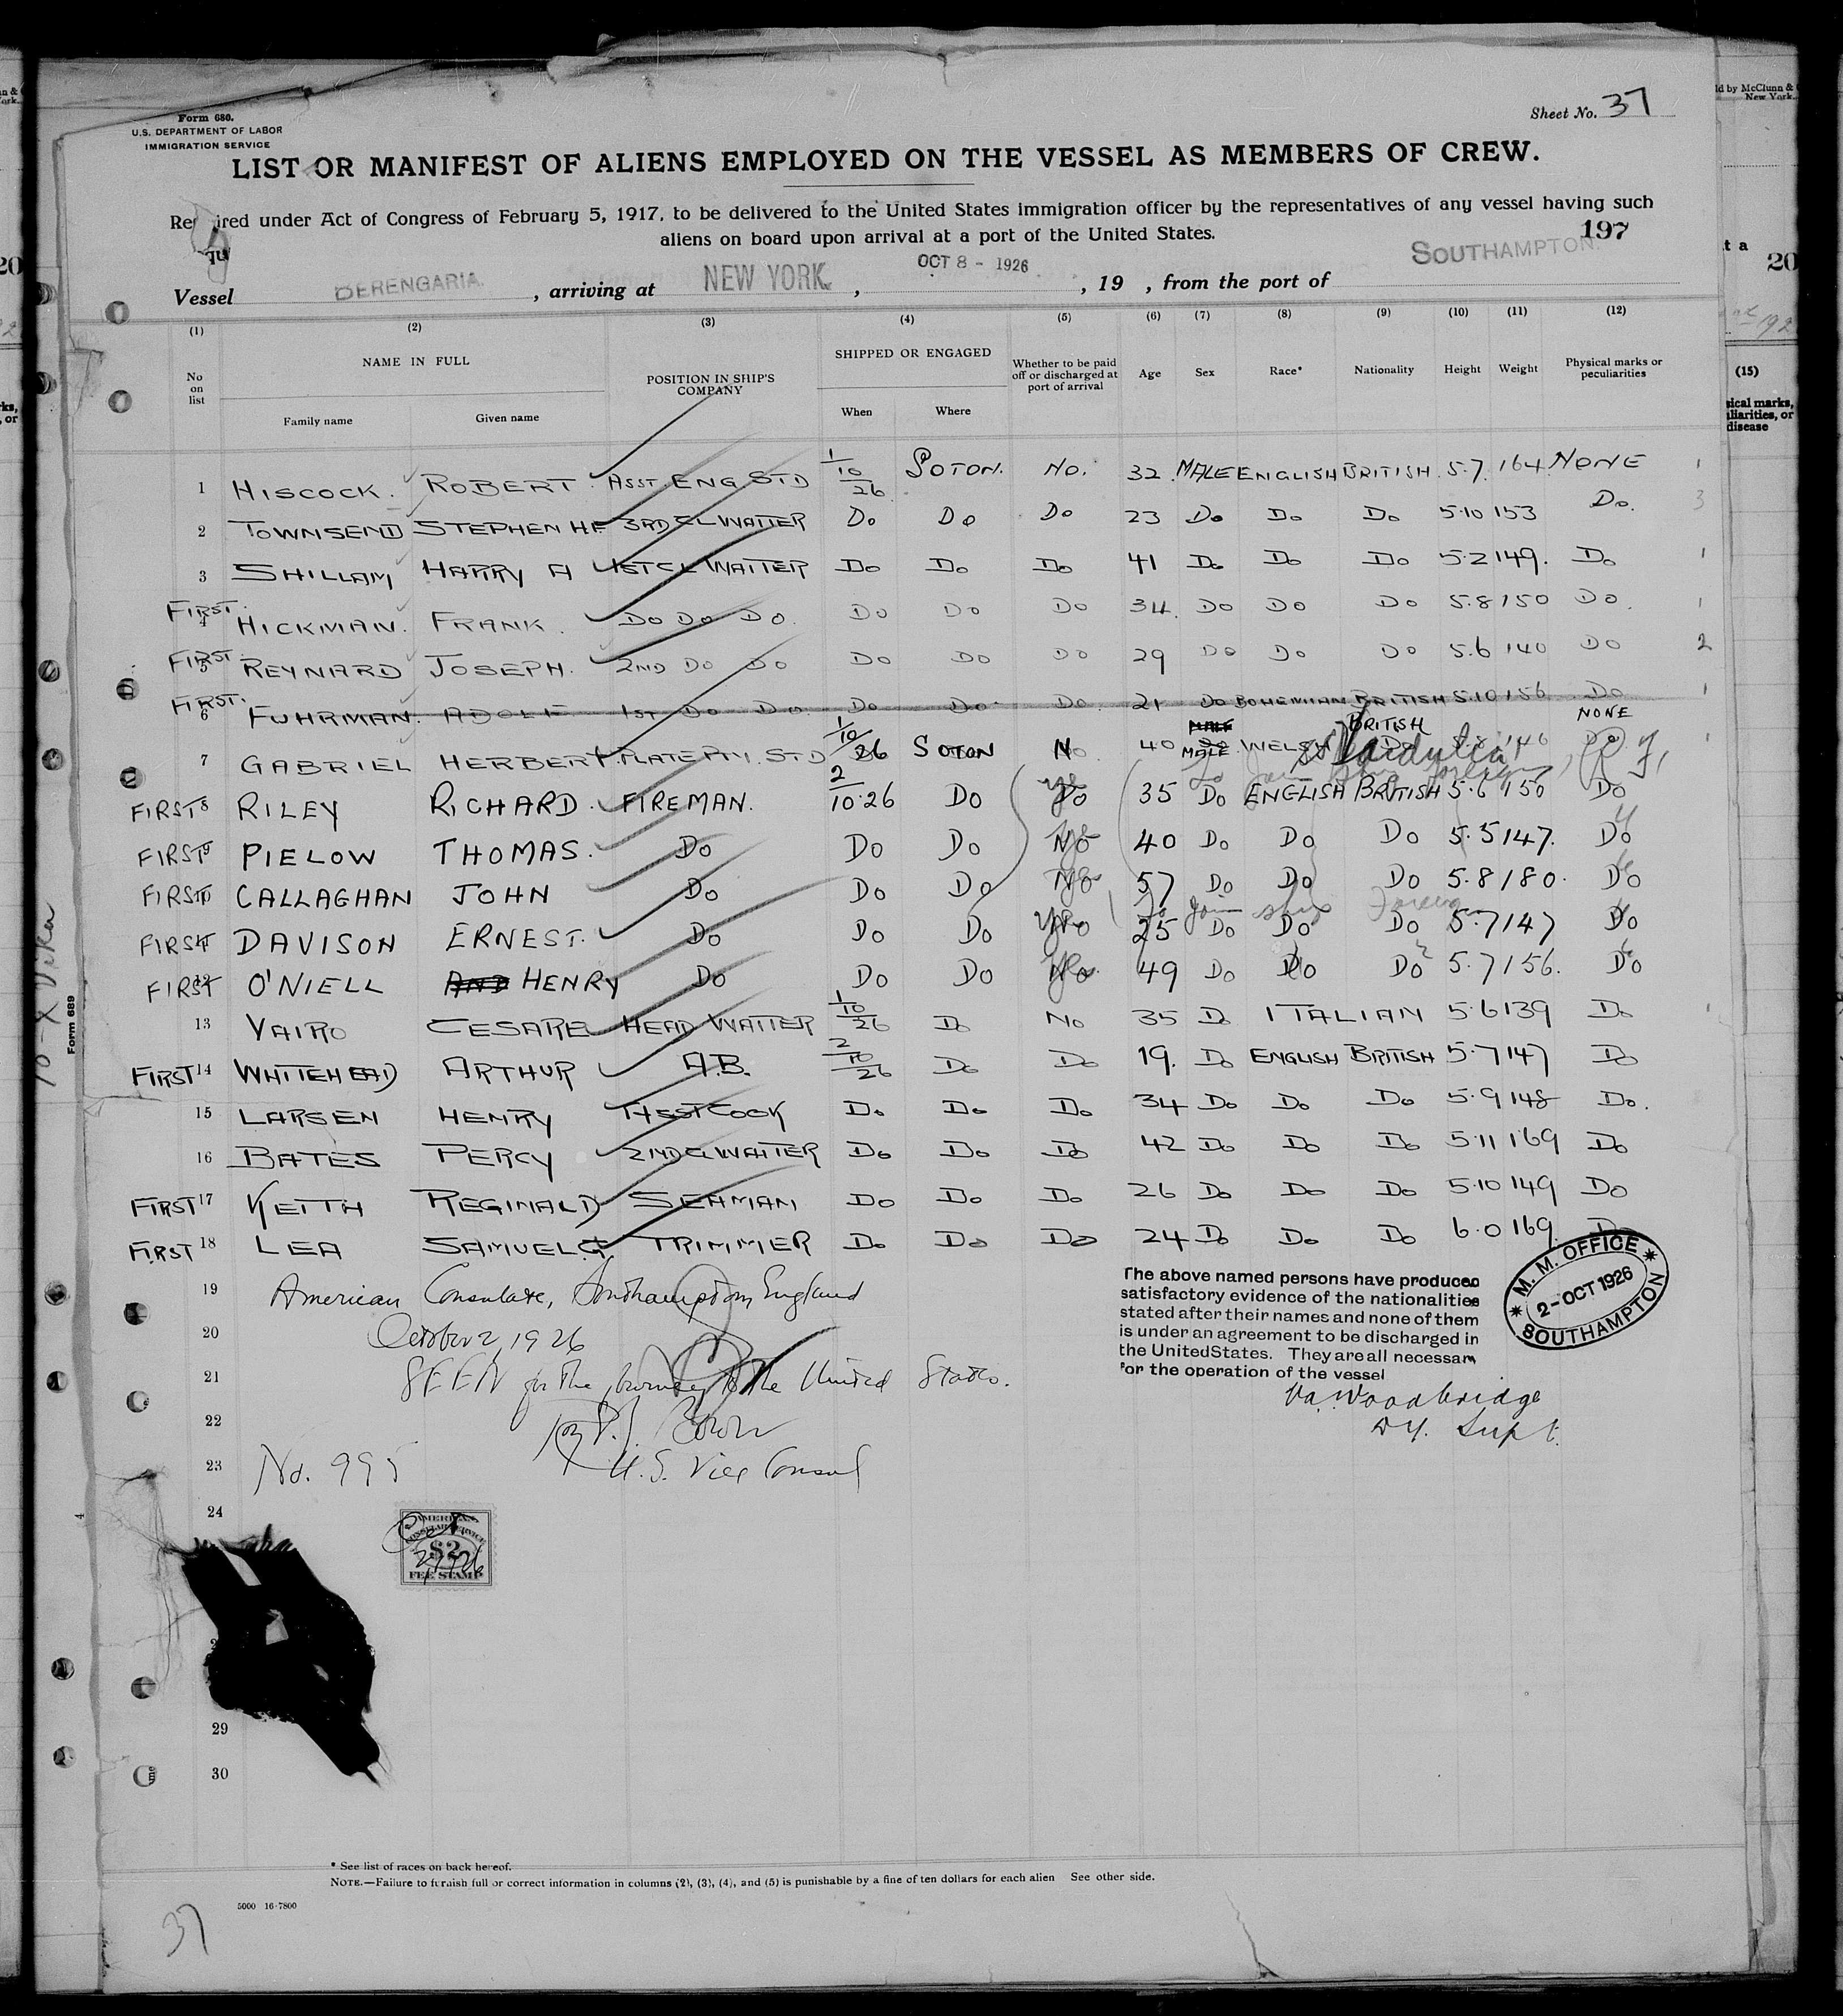 Form 680.
U.S. DEPARTMENT OF LABOR
IMMIGRATION SERVICE
Sheet No. 37
LIST OR MANIFEST OF ALIENS EMPLOYED ON THE VESSEL AS MEMBERS OF CREW.
Required under Act of Congress of February 5, 1917, to be delivered to the United States immigration officer by the representatives of any vessel having such
aliens on board upon arrival at a port of the United States.
197
Vessel BERENGARIA, arriving at NEW YORK, OCT 8 - 1926, 19 , from the port of SOUTHAMPTON.
(1) (2) (3) (4) (5) (6) (7) (8) (9) (10) (11) (12)
No on list NAME IN FULL Family name Given name POSITION IN SHIP'S COMPANY SHIPPED OR ENGAGED When Where Whether to be paid off or discharged at port of arrival Age Sex Race* Nationality Height Weight Physical marks or peculiarities
1 HISCOCK. ROBERT ASST. ENG STD 1/10/26 SOTON. No. 32. MALE ENGLISH BRITISH 5.7. 164 NONE 1
2 TOWNSEND STEPHEN HF 3RD CL WAITER Do Do Do 23 Do Do Do 5.10 153 Do. 3
3 SHILLAM HARRY A 1ST CL WAITER Do Do Do 41 Do Do Do 5.2 149. Do 1
FIRST. 4 HICKMAN. FRANK. Do Do Do. Do Do Do 34. Do Do Do 5.8 150 Do. 1
FIRST. 5 REYNARD JOSEPH. 2ND Do Do Do Do Do 29 Do Do Do 5.6 140 Do 2
FIRST. 6 FUHRMAN. ADOLF 1ST Do Do. Do Do. Do. 21 Do BOHEMIAN BRITISH 5.10 156 Do 1
7 GABRIEL HERBERT. PLATE PY. STD 1/10/26 SOTON No. 40 MALE WELSH BRITISH 146 NONE 1
FIRST 8 RILEY RICHARD. FIREMAN. 2/10.26 Do Do 35 Do ENGLISH BRITISH 5.6 150 Do
FIRST 9 PIELOW THOMAS. Do Do Do No 40 Do Do Do 5.5 147. Do
FIRST 10 CALLAGHAN JOHN Do Do Do No 57 Do Do Do 5.8 180. Do
join ship Foreign
FIRST 11 DAVISON ERNEST. Do Do Do No 25 Do Do Do 5.7 147 Do
FIRST 12 O'NIELL HENRY Do Do Do No 49 Do Do Do 5.7 156. Do
13 VAIRO CESARE HEAD WAITER 1/10/26 Do No 35 Do ITALIAN 5.6 139 Do
FIRST 14 WHITEHEAD ARTHUR A.B. 2/10/26 Do Do 19. Do ENGLISH BRITISH 5.7 147 Do
15 LARSEN HENRY ASST COOK Do Do Do 34 Do Do Do 5.9 148 Do.
16 BATES PERCY 2ND CL WAITER Do Do Do 42 Do Do Do 5.11 169 Do
FIRST 17 KEITH REGINALD SEAMAN Do Do Do 26 Do Do Do 5.10 149 Do
FIRST 18 LEA SAMUEL G. TRIMMER Do Do Do 24 Do Do Do 6.0 169. Do
19 American Consulate, Southampton, England
20 October 2, 1926
21 SEEN for the journey to the United States.
22
23 No. 995 U.S. Vice Consul
24
29
30
The above named persons have produced
satisfactory evidence of the nationalities
stated after their names and none of them
is under an agreement to be discharged in
the United States. They are all necessary
for the operation of the vessel
Woodbridge
Dy. Supt.
M. M. OFFICE
2-OCT 1926
SOUTHAMPTON
AMERICAN
CONSULAR SERVICE
$2
FEE STAMP
* See list of races on back hereof.
NOTE.—Failure to furnish full or correct information in columns (2), (3), (4), and (5) is punishable by a fine of ten dollars for each alien See other side.
5000 16-7800
37
Form 689
ld by McClunn &
New York.
20
(15)
disease